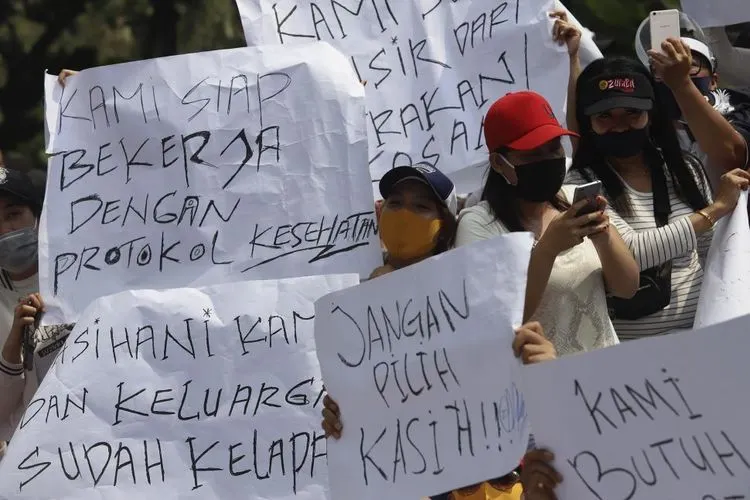 KAMI SIAP
BEKERJA
DENGAN
PROTOKOL KESEHATAN
KAMI
SIR DARI
RAKAN
KOSAN
ZUMBA
ASIHANI KAMI
DAN KELUARGA
SUDAH KELAPA
JANGAN
PILIH
KASIH!!
KAMI
BUTUH